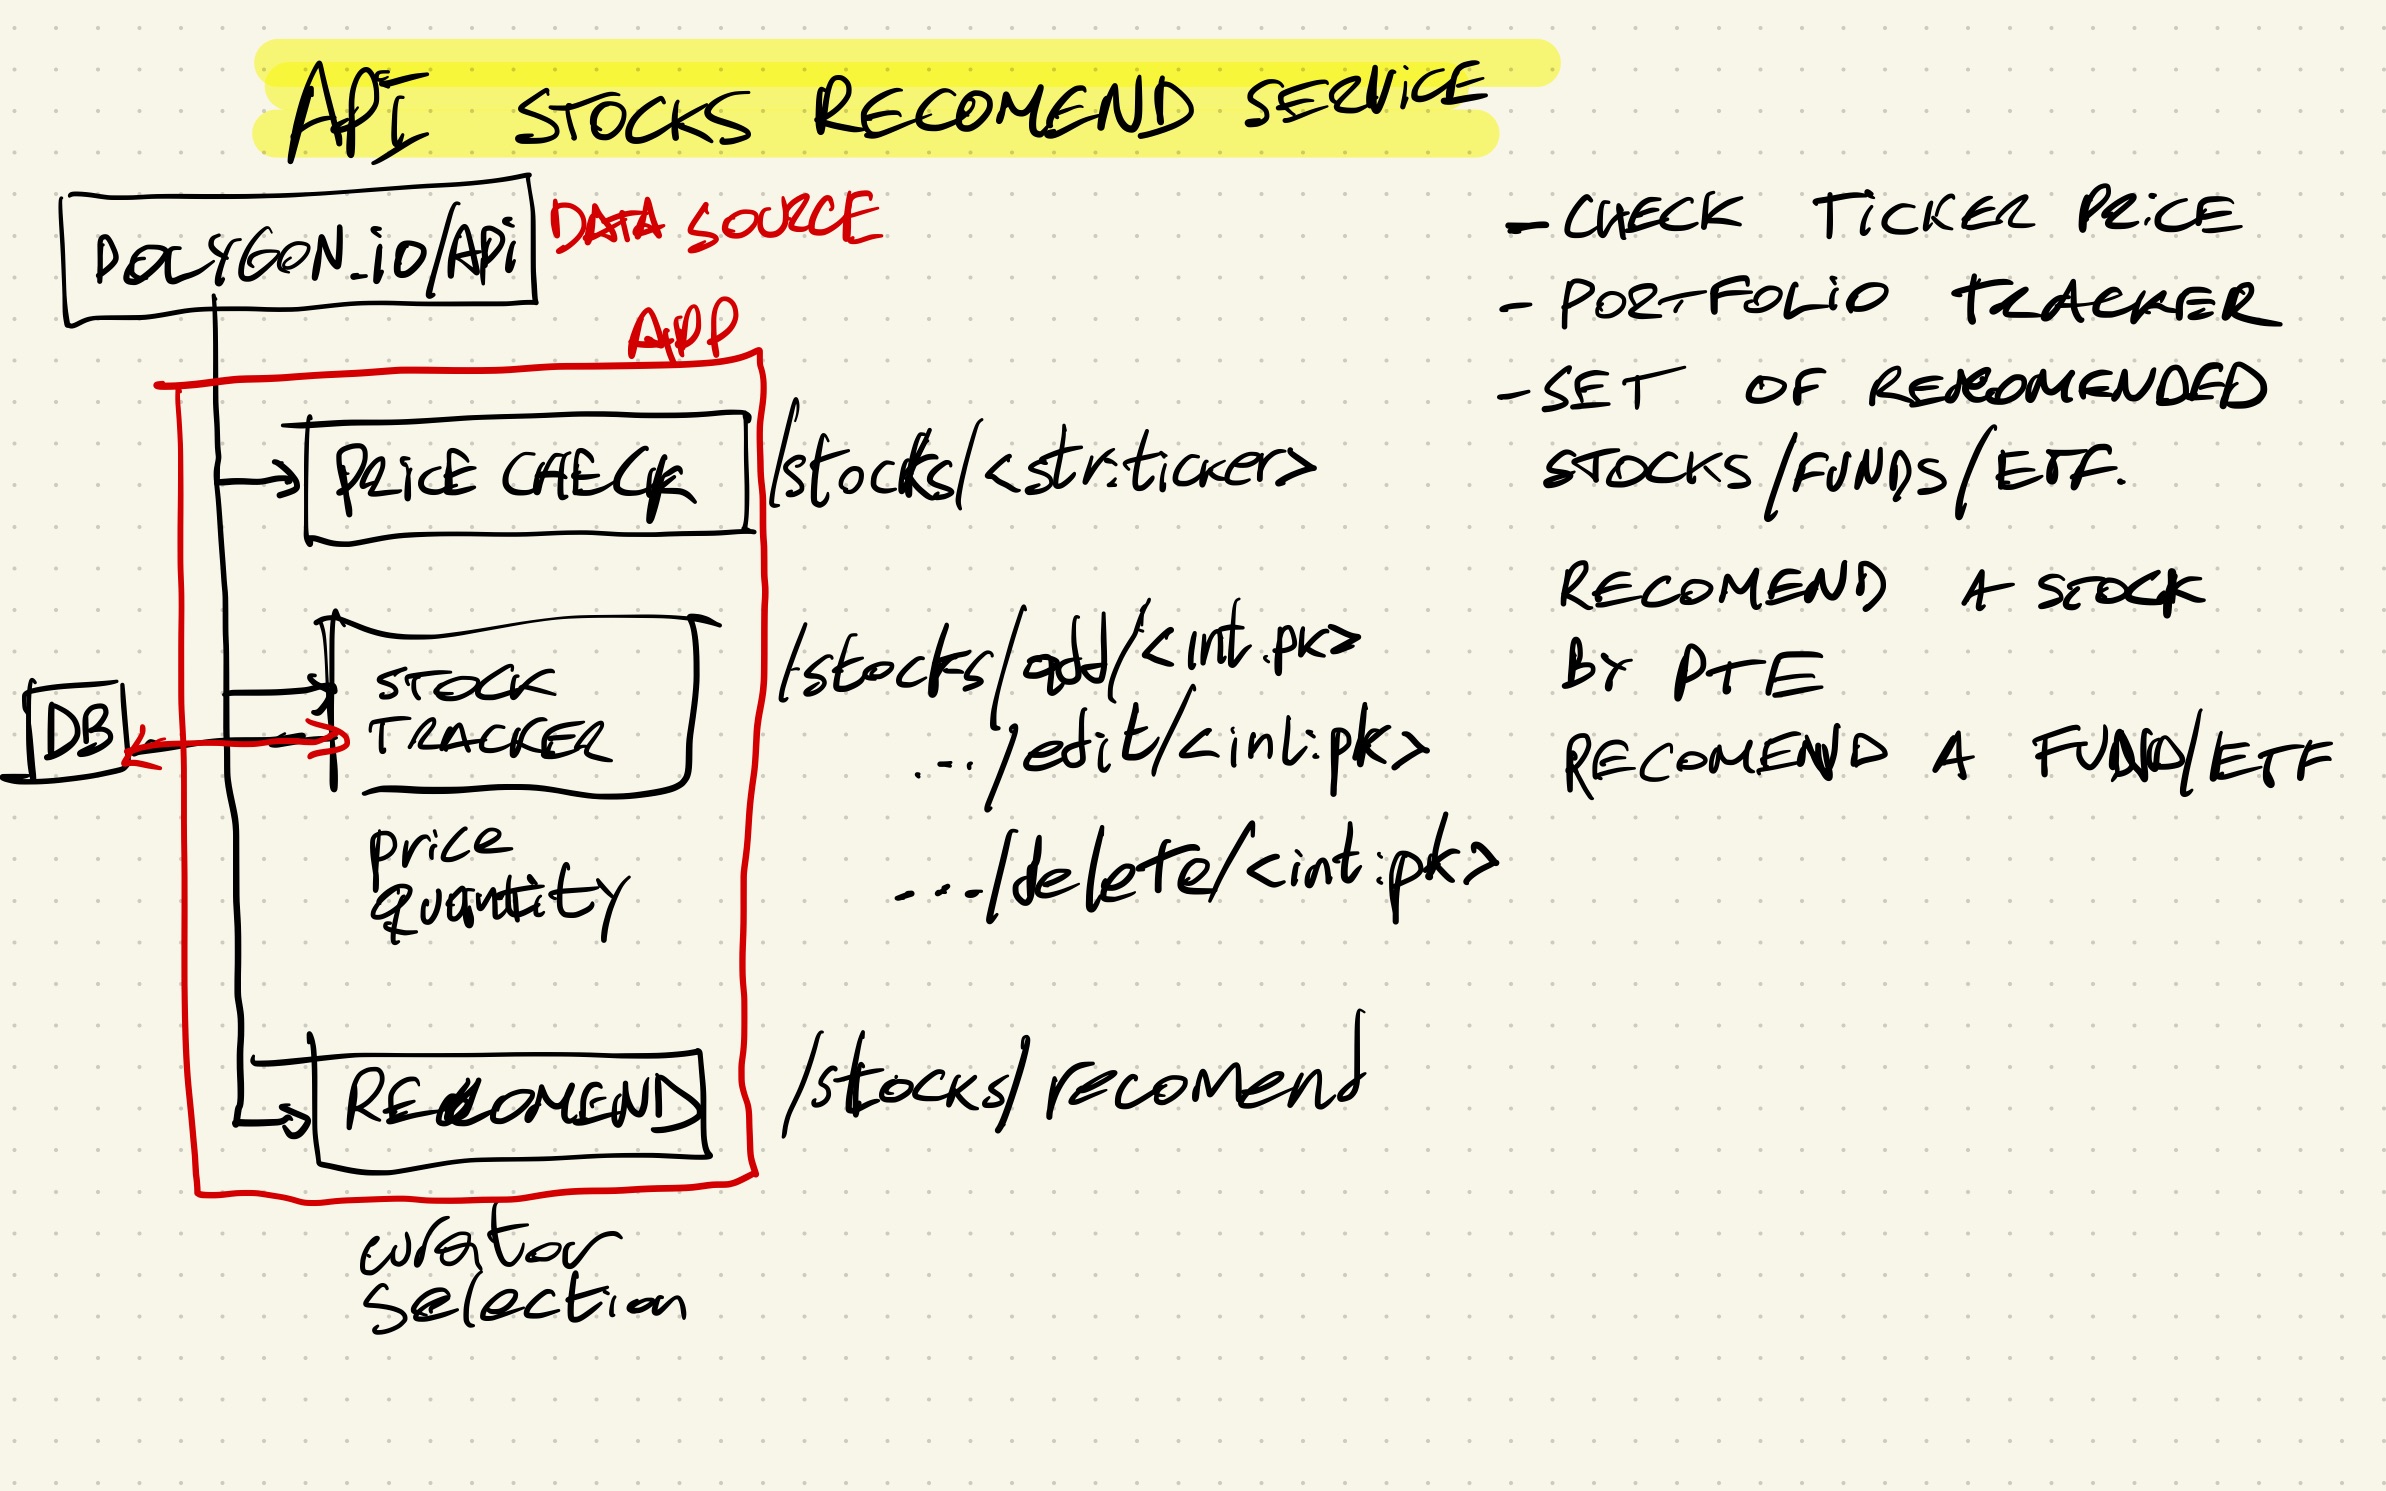 API STOCKS RECOMEND SERVICE
POLYGON.io/APi
DATA SOURCE
APP
PRICE CHECK
/stocks/<str:ticker>
DB
STOCK
TRACKER
/stocks/add/<int:pk>
.../edit/<int:pk>
.../delete/<int:pk>
price
quantity
RECOMEND
/stocks/recomend
curator
selection
- CHECK TICKER PRICE
- PORTFOLIO TRACKER
- SET OF RECOMENDED
STOCKS/FUNDS/ETF.
RECOMEND A STOCK
BY PTE
RECOMEND A FUND/ETF